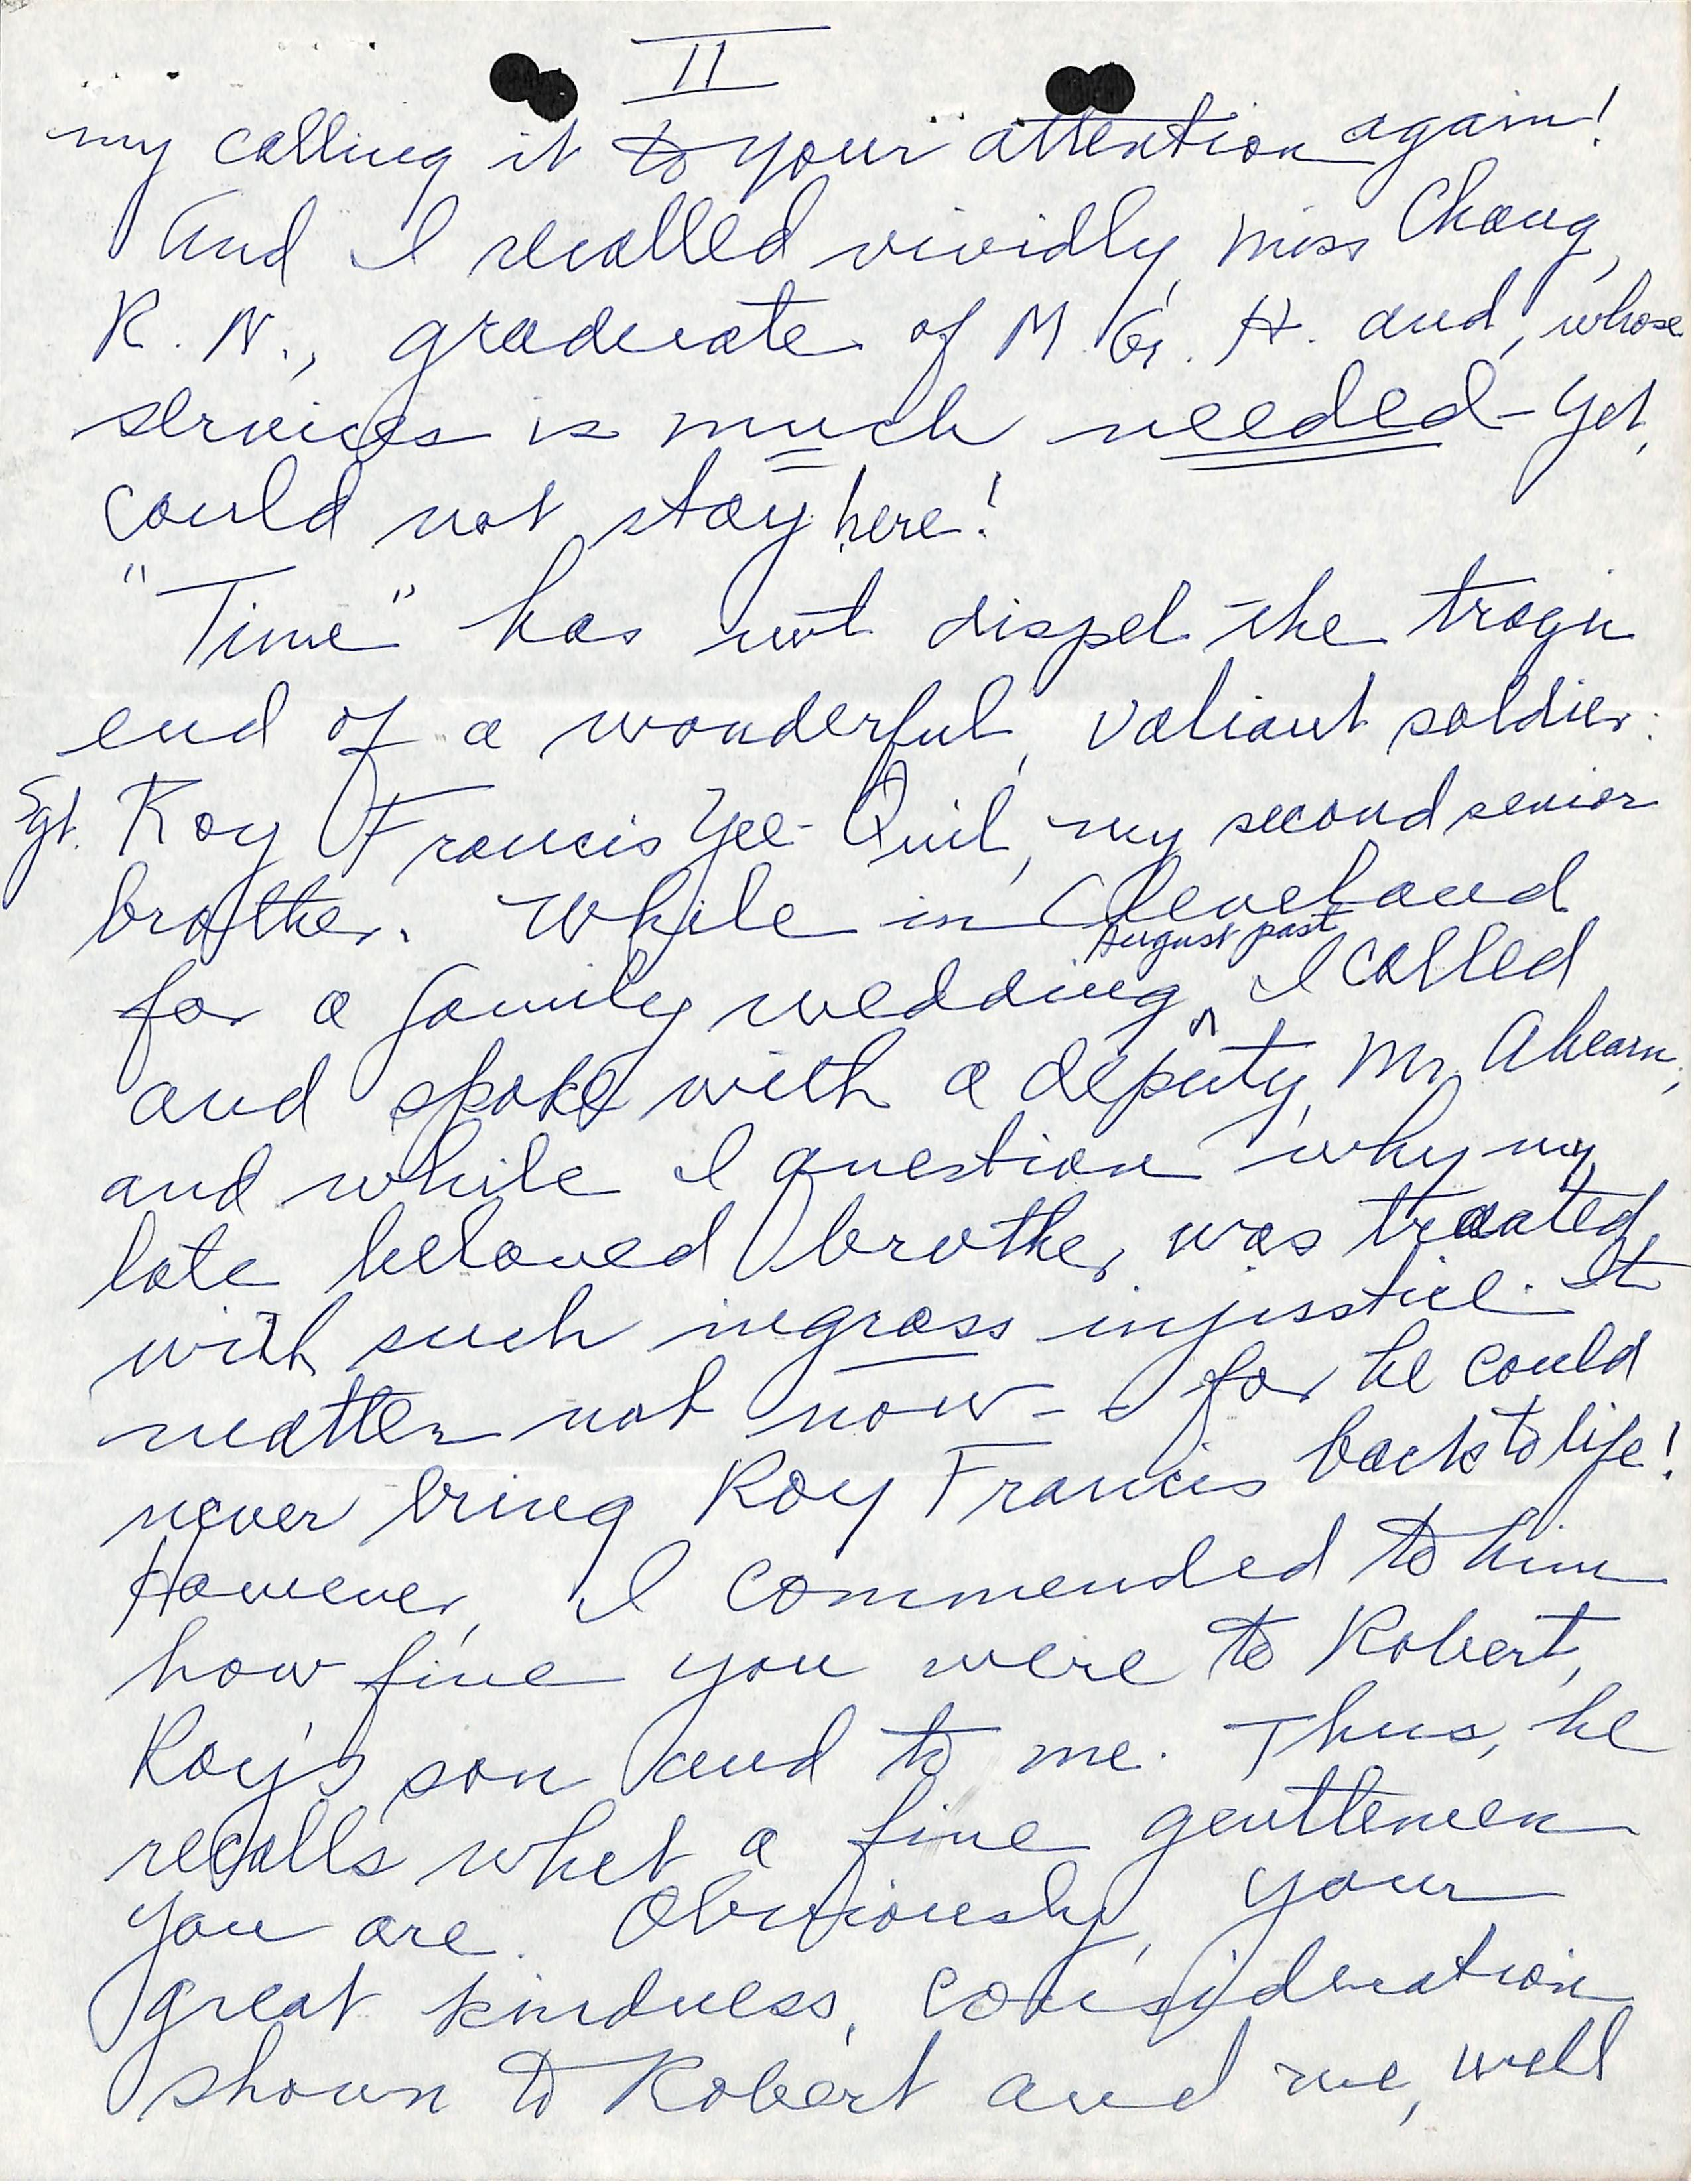 II
my calling it to your attention again!
And I recalled vividly, Miss Chang,
R. N., graduate of M. G. H. and, whose
services is much needed - yet,
could not stay here!
"Time" has not dispel the tragic
end of a wonderful, valiant soldier:
Sgt. Roy Francis Yee-Quil, my second senior
brother. While in Cleveland
for a family wedding August past, I called
and spoke with a deputy, Mr. Ahearn,
and while I question why my
late beloved brother was treated
with such ingross injustice. It
matter not now - for he could
never bring Roy Francis back to life!
However, I commended to him
how fine you were to Robert,
Roy's son and to me. Thus, he
recalls what a fine gentlemen
you are. Obviously, your
great kindness, consideration
shown to Robert and me, well